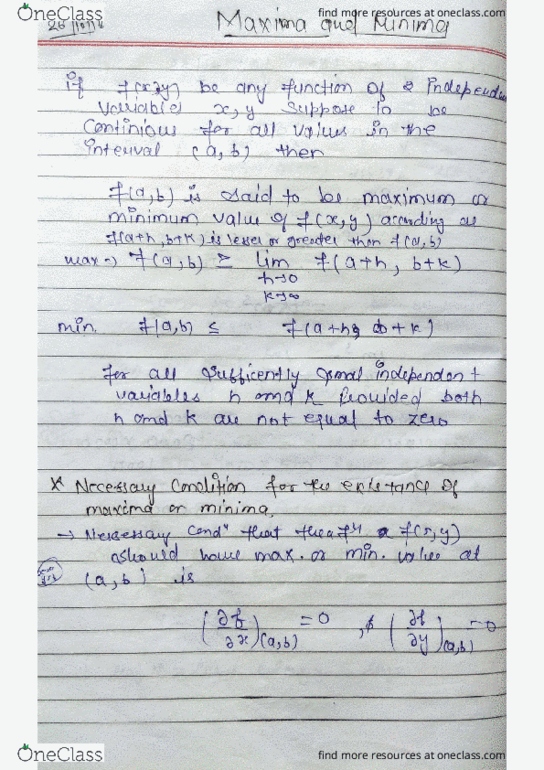 OneClass
find more resources at oneclass.com
Maxima and Minima
if f(x,y) be any function of 2 Independen
variables x,y suppose to be
Continious for all values in the
interval (a,b) then
f(a,b) is said to be maximum or
minimum value of f(x,y) according as
f(a+h, b+k) is lesser or greater than f(a,b)
max → f(a,b) ≥ lim f(a+h, b+k)
h→0
k→∞
min. f(a,b) ≤ f(a+h, b+k)
for all sufficently small independent
variables h and k provided both
h and k are not equal to zero
* Necessary Condition for the existance of
maxima or minima.
→ Necessary condⁿ that f(x,y)
should have max. or min. value at
(a,b) is
(∂f/∂x)(a,b) = 0 , & (∂f/∂y)(a,b) = 0
OneClass
find more resources at oneclass.com